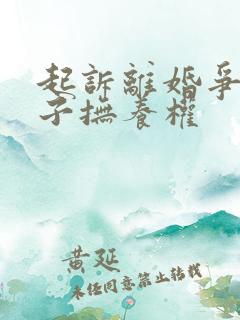 起訴離婚爭
子撫養權
黄延
未经同意禁止转载